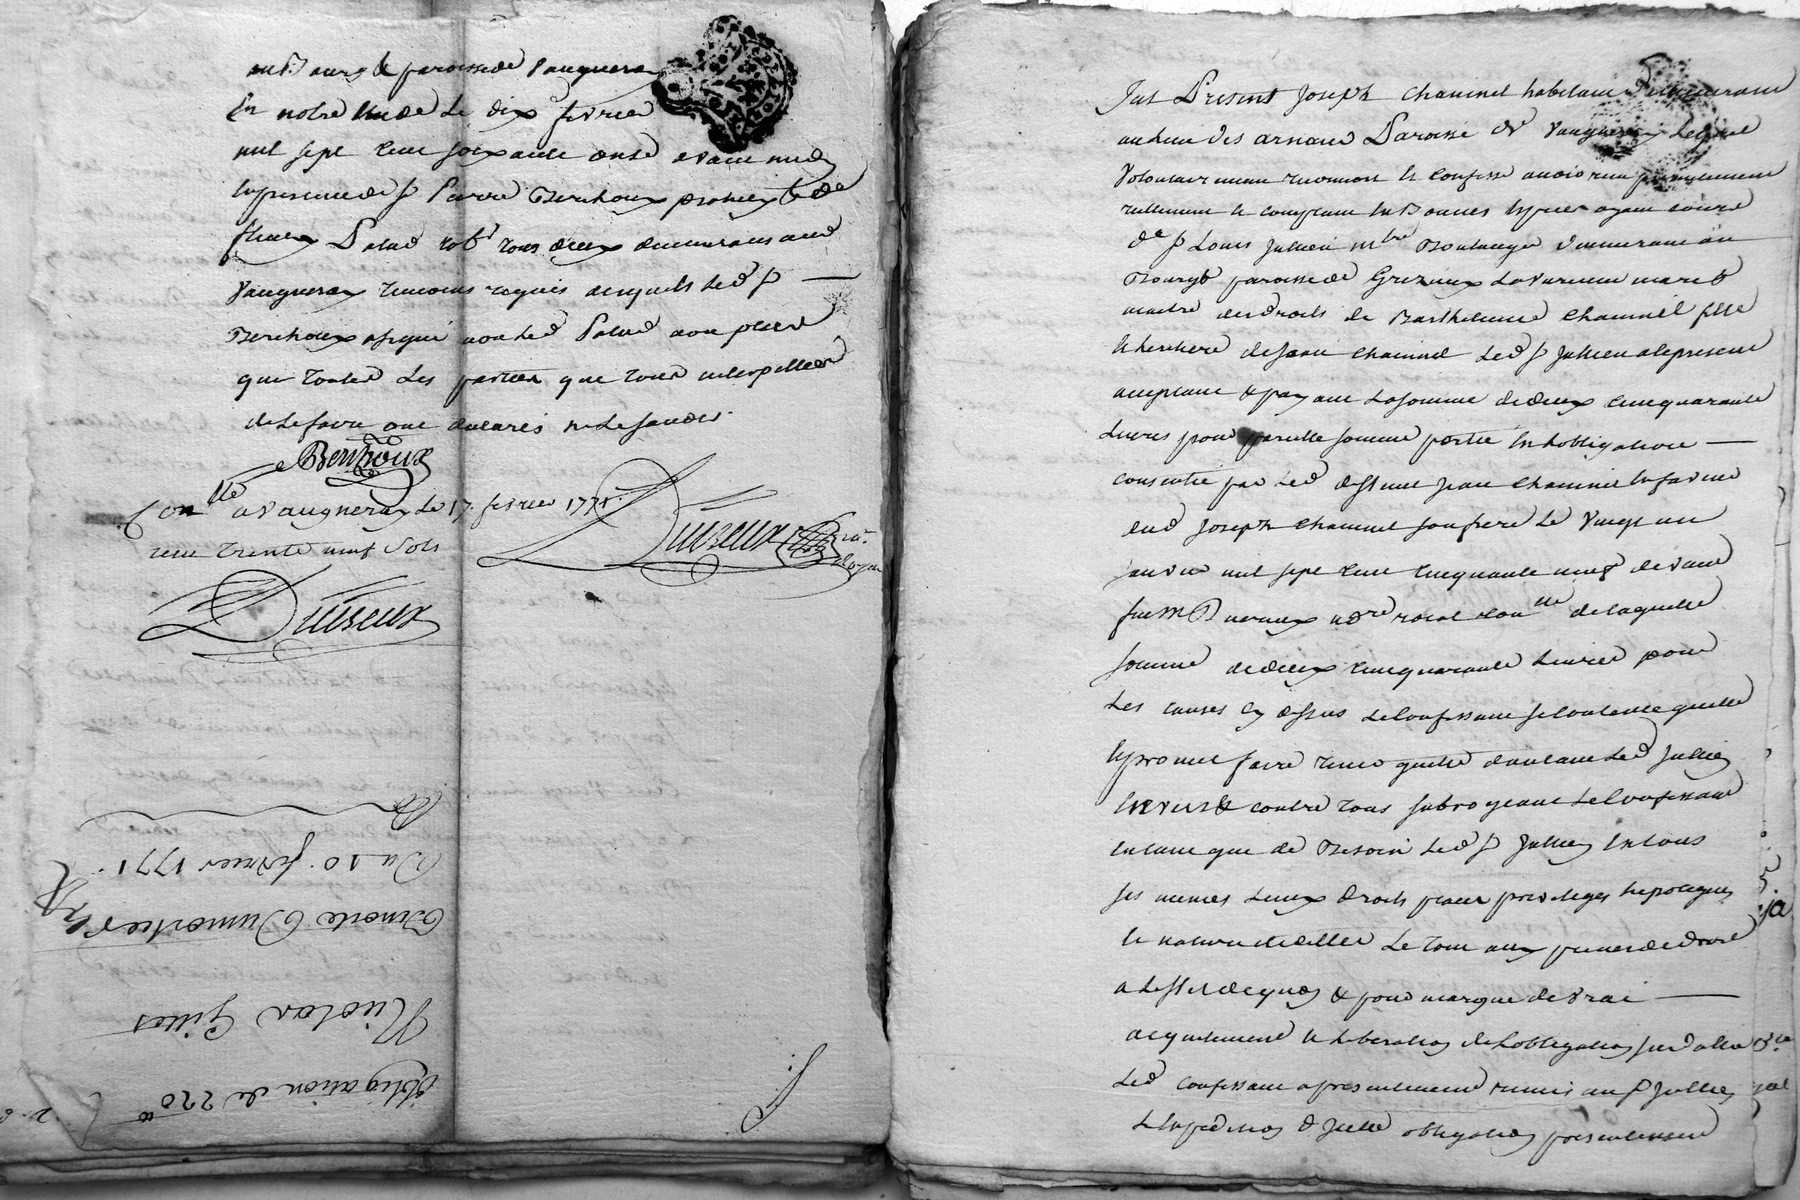 au Bourg & paroisse de Vaugneray
En notre etude Le dix fevrier
mil sept cent soixante onze avant midy
En presence de sr Pierre Berthoux
Paland tous deux demeurans aud
Vaugneray temoins requis desquels led sr
Berthoux a signé non led Paland non plus
que toutes Les parties que tous interpellés
de Le faire ont declarés ne le savoir
Berthoux
Conlle a Vaugneray Le 17 fevrier 1771
recu trente neuf sols
Duiseux
Duiseux
Obligation de 220 ll
Nicolas Gines
Benoite Dumortier
Du 10 fevrier 1771
fut Present Joseph chaumel habitant
au lieu des arnaud Paroisse de Vaugneray Lequel
Volontairement reconnoit & confesse avoir recu presentement
reellement & comptant en Bonnes Especes ayant cours
de sr Louis Jullien mtre Boulanger demeurant au
Bourg & paroisse de Grezieux La Varenne mary &
maitre des droits de Barthelemie chaumel fille
& heritiere de Jean chaumel Led sr Jullien a le present
acceptant & payant La somme de deux cent quarante
Livres pour pareille somme portée En Lobligation
consentie par Led deffunt Jean chaumel En faveur
dud Joseph chaumel son frere Le Vingt un
janvier mil sept cent cinquante neuf devant
feu Me nore royal conlle de laquelle
somme de deux cent quarante Livres pour
Les causes cy dessus Le Confessant se contente quitte
& promet faire tenir quitte d'autant Led Jullien
Envers & contre tous subrogeant Le Confessant
en tant que de Besoin Led sr Jullien En tous
ses memes Lieux Droits place privileges hypoteques
& nature dicelles Le tout aux peines de droit
a Leffet de quoy & pour marque de Vrai
acquitement & Liberation de Lobligation
Led confessant a presentement remis au sr Jullien
L'expedition d'Icelle obligation presentement